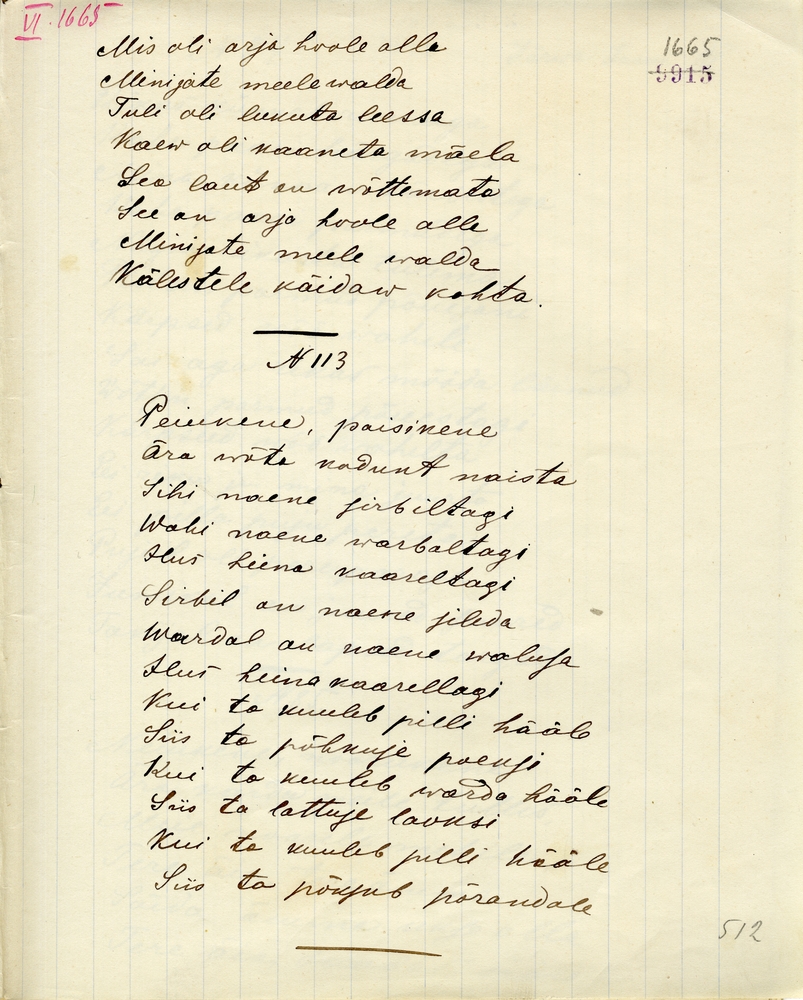 VI. 1665
1665
9915
Mis oli orja hoole alla
Minijate meele walda
Tuli oli lukuta leessa
Kaew oli kaaneta mäela
Sea laut on wõttemata
See on orja hoole alla
Minijate meele walda
Kälestele käidaw kohta.
N 113
Peiukene, poisikene
Ära wõta kodunt naista
Sihi naene sirbiltagi
Wahi naene warbaltagi
Ilus heina kaareltagi
Sirbil on naene sileda
Wardal on naene walusa
Ilus heina kaarellagi
Kui ta kuuleb pilli hääle
Siis ta põhkuje poeksi
Kui ta kuuleb warda hääle
Siis ta lattuje laoksi
Kui ta kuuleb pilli hääle
Siis ta põksub põrandale
512